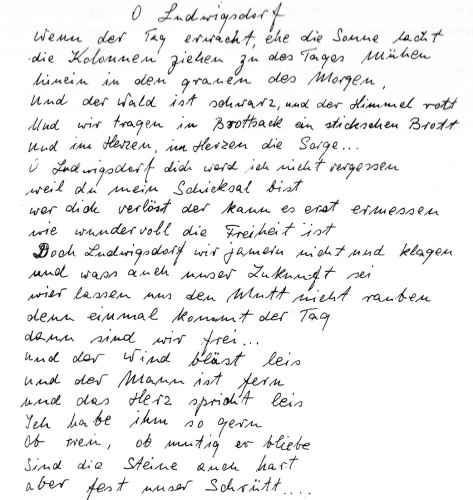 O Ludwigsdorf
Wenn der Tag erwacht, ehe die Sonne lacht
die Kolonnen ziehen zu des Tages Mühen
hinein in den grauen des Morgen,
Und der Wald ist schwarz, und der Himmel rott
Und wir tragen in Brottsack ein stickschen Brott
und im Herzen, im Herzen die Sorge...
O Ludwigsdorf dich werd ich nicht vergessen
weil du mein Schicksal bist
wer dich verlöst der kann es erst ermessen
wie wundervoll die Freiheit ist
Doch Ludwigsdorf wir jamern nicht und klagen
und wass auch unser Zukunft sei
wier lassen uns den Mutt nicht rauben
denn einmal kommt der Tag
dann sind wir frei...
und der Wind bläst leis
und der Mann ist fern
und das Herz spricht leis
Ich habe ihm so gern
Ob rein, ob mutig er bliebe
Sind die Steine auch hart
aber fest unser Schrütt....